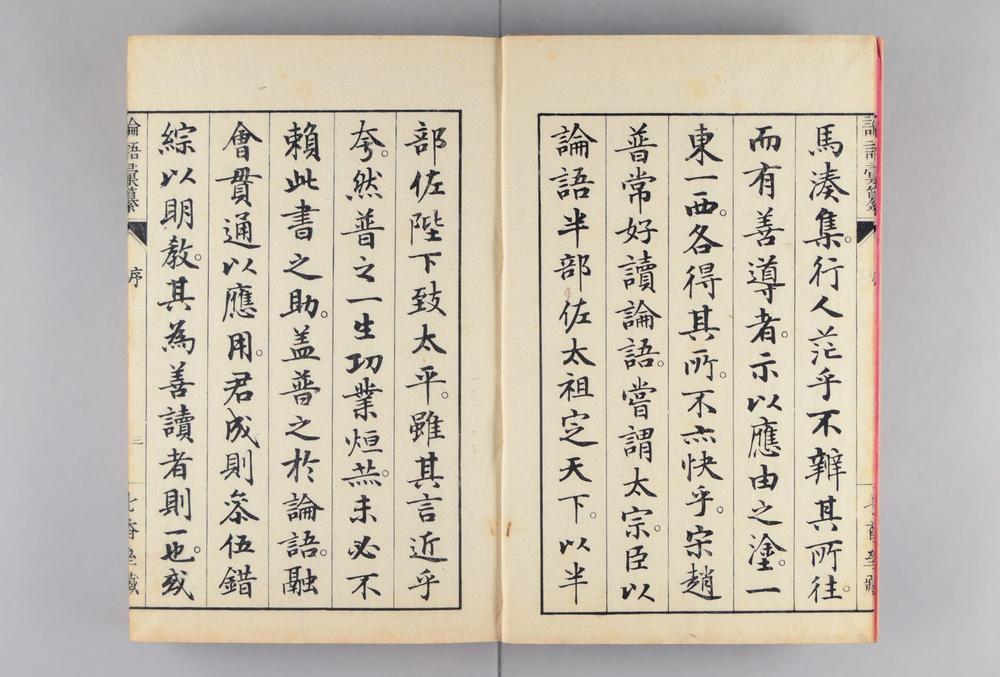 馬湊集。行人茫乎不辨其所往。
而有善導者。示以應由之塗。一
東一西。各得其所。不亦快乎。宋趙
普常好讀論語。嘗謂太宗。臣以
論語半部佐太祖定天下。以半
部佐陛下致太平。雖其言近乎
夸。然普之一生功業烜燕。未必不
賴此書之助。蓋普之於論語。融
會貫通以應用。君成則叅伍錯
綜以明教。其為善讀者則一也。或
論語彙纂
序
三